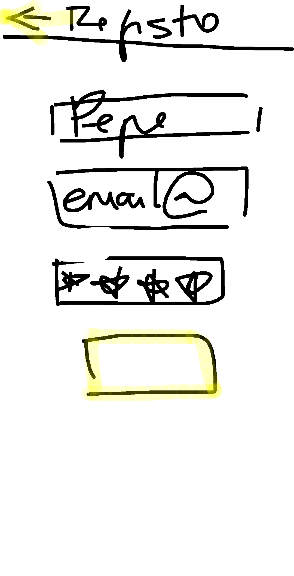 ← Registro
Pepe
email@
****